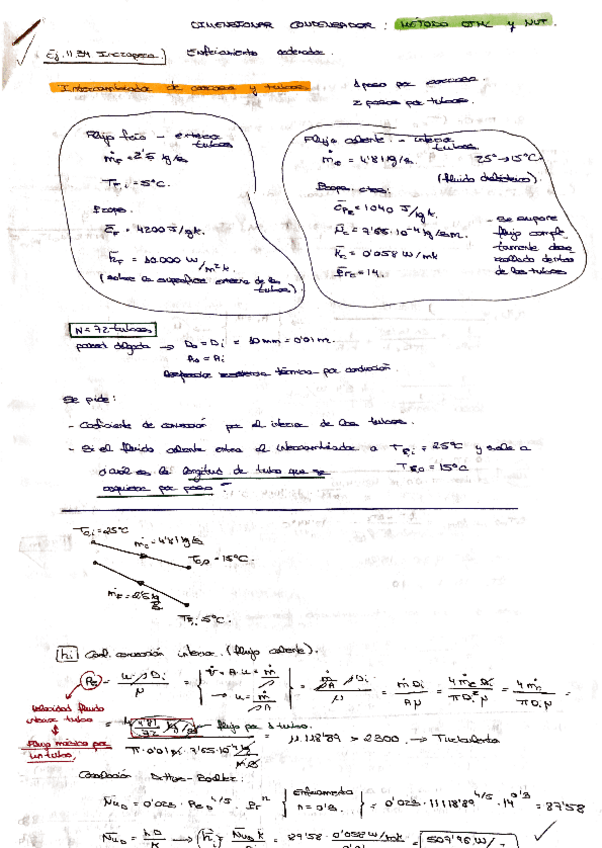 DIMENSIONAR CONDENSADOR: MÉTODO DTML y NUT.
Ej. 11.34 Incropera) Enfriamiento ordenador.
Intercambiador de carcasa y tubos
1 paso por carcasa.
2 pasos por tubos.
Flujo frío - externa tubos
ṁF = 2'5 kg/s
TF,i = 5°C.
Props.
C̄F = 4200 J/kgK.
h̄F = 10.000 W/m²K.
(sobre la superficie externa de los tubos).
Flujo caliente - interior tubos
ṁc = 4'81 kg/s. 25° → 15°C
(fluido dieléctrico).
Props. ctes:
C̄Pc = 1040 J/kgK.
μ̄c = 7'65·10⁻⁴ kg/s·m.
K̄c = 0'058 W/mK
P̄rc = 14.
- Se supone
flujo comple
tamente desa
rrollado dentro
de los tubos
N = 72 tubos
pared delgada → Do = Di = 10 mm = 0'01 m.
Ao = Ai
resistencia térmica por conducción.
Se pide:
- Coeficiente de convección por el interior de los tubos.
- Si el fluido caliente entra al intercambiador a Tc,i = 25°C y sale a
Tc,o = 15°C
cuál es la longitud de tubo que se
requiere por paso
Tc,i = 25°C
ṁc = 4'81 kg/s
Tc,o = 15°C.
ṁF = 2'5 kg/s
TF,i 5°C.
hi Coef. convección interior. (flujo caliente).
Re = u·ρDi / μ = { V̇ = A·u = ṁ/ρ → u = ṁ/ρA } = ṁ/ρA ρDi / μ = ṁ Di / Aμ = 4 ṁc Di / πDi² μ = 4 ṁc / πDi μ =
Velocidad fluido
interior tubos
Flujo másico por
un tubo.
= 4 4'81/72 kg/s / π·0'01·7'65·10⁻⁴ → flujo por 1 tubo. = 11.118'89 > 2300. → Turbulento
Correlación Dittus-Boelter:
N̄uD = 0'023·ReD^4/5·Pr^n { enfriamiento n = 0'3. } = 0'023·11118'89^4/5·14^0'3 = 87'58
N̄uD = h·D/K → h̄i = N̄uD K = 0'058 W/mK = 509'96 W/